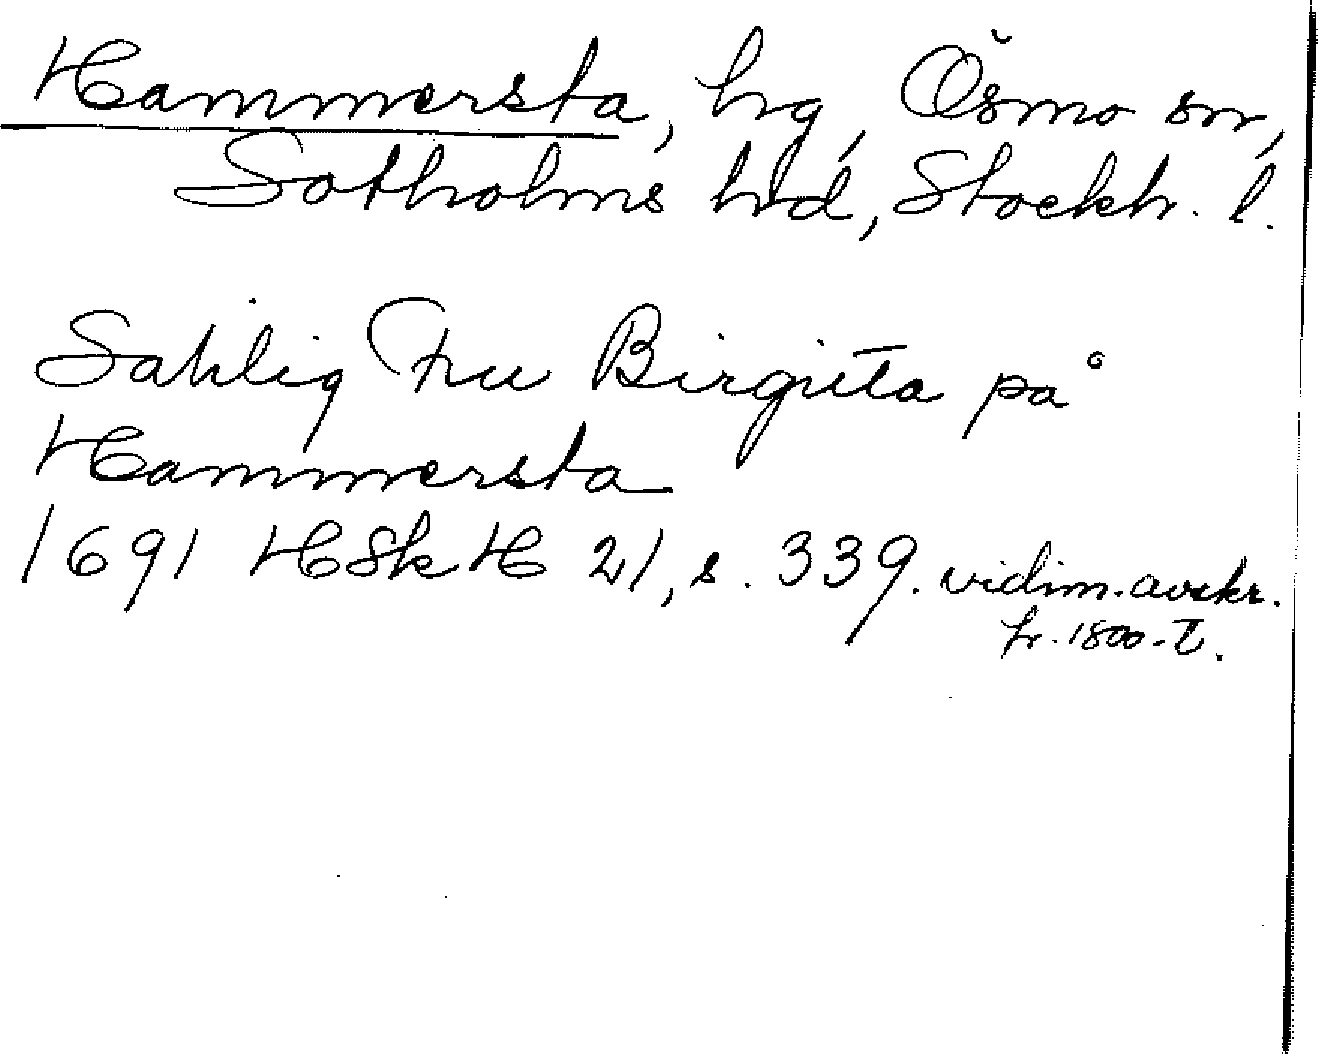 Hammersta, hg, Ösmo sn,
Sotholms hd, Stockh. l.
Sahlig Fru Birgitta på
Hammersta
1691 HSkH 21, s. 339. vidim. avskr.
fr. 1800-t.